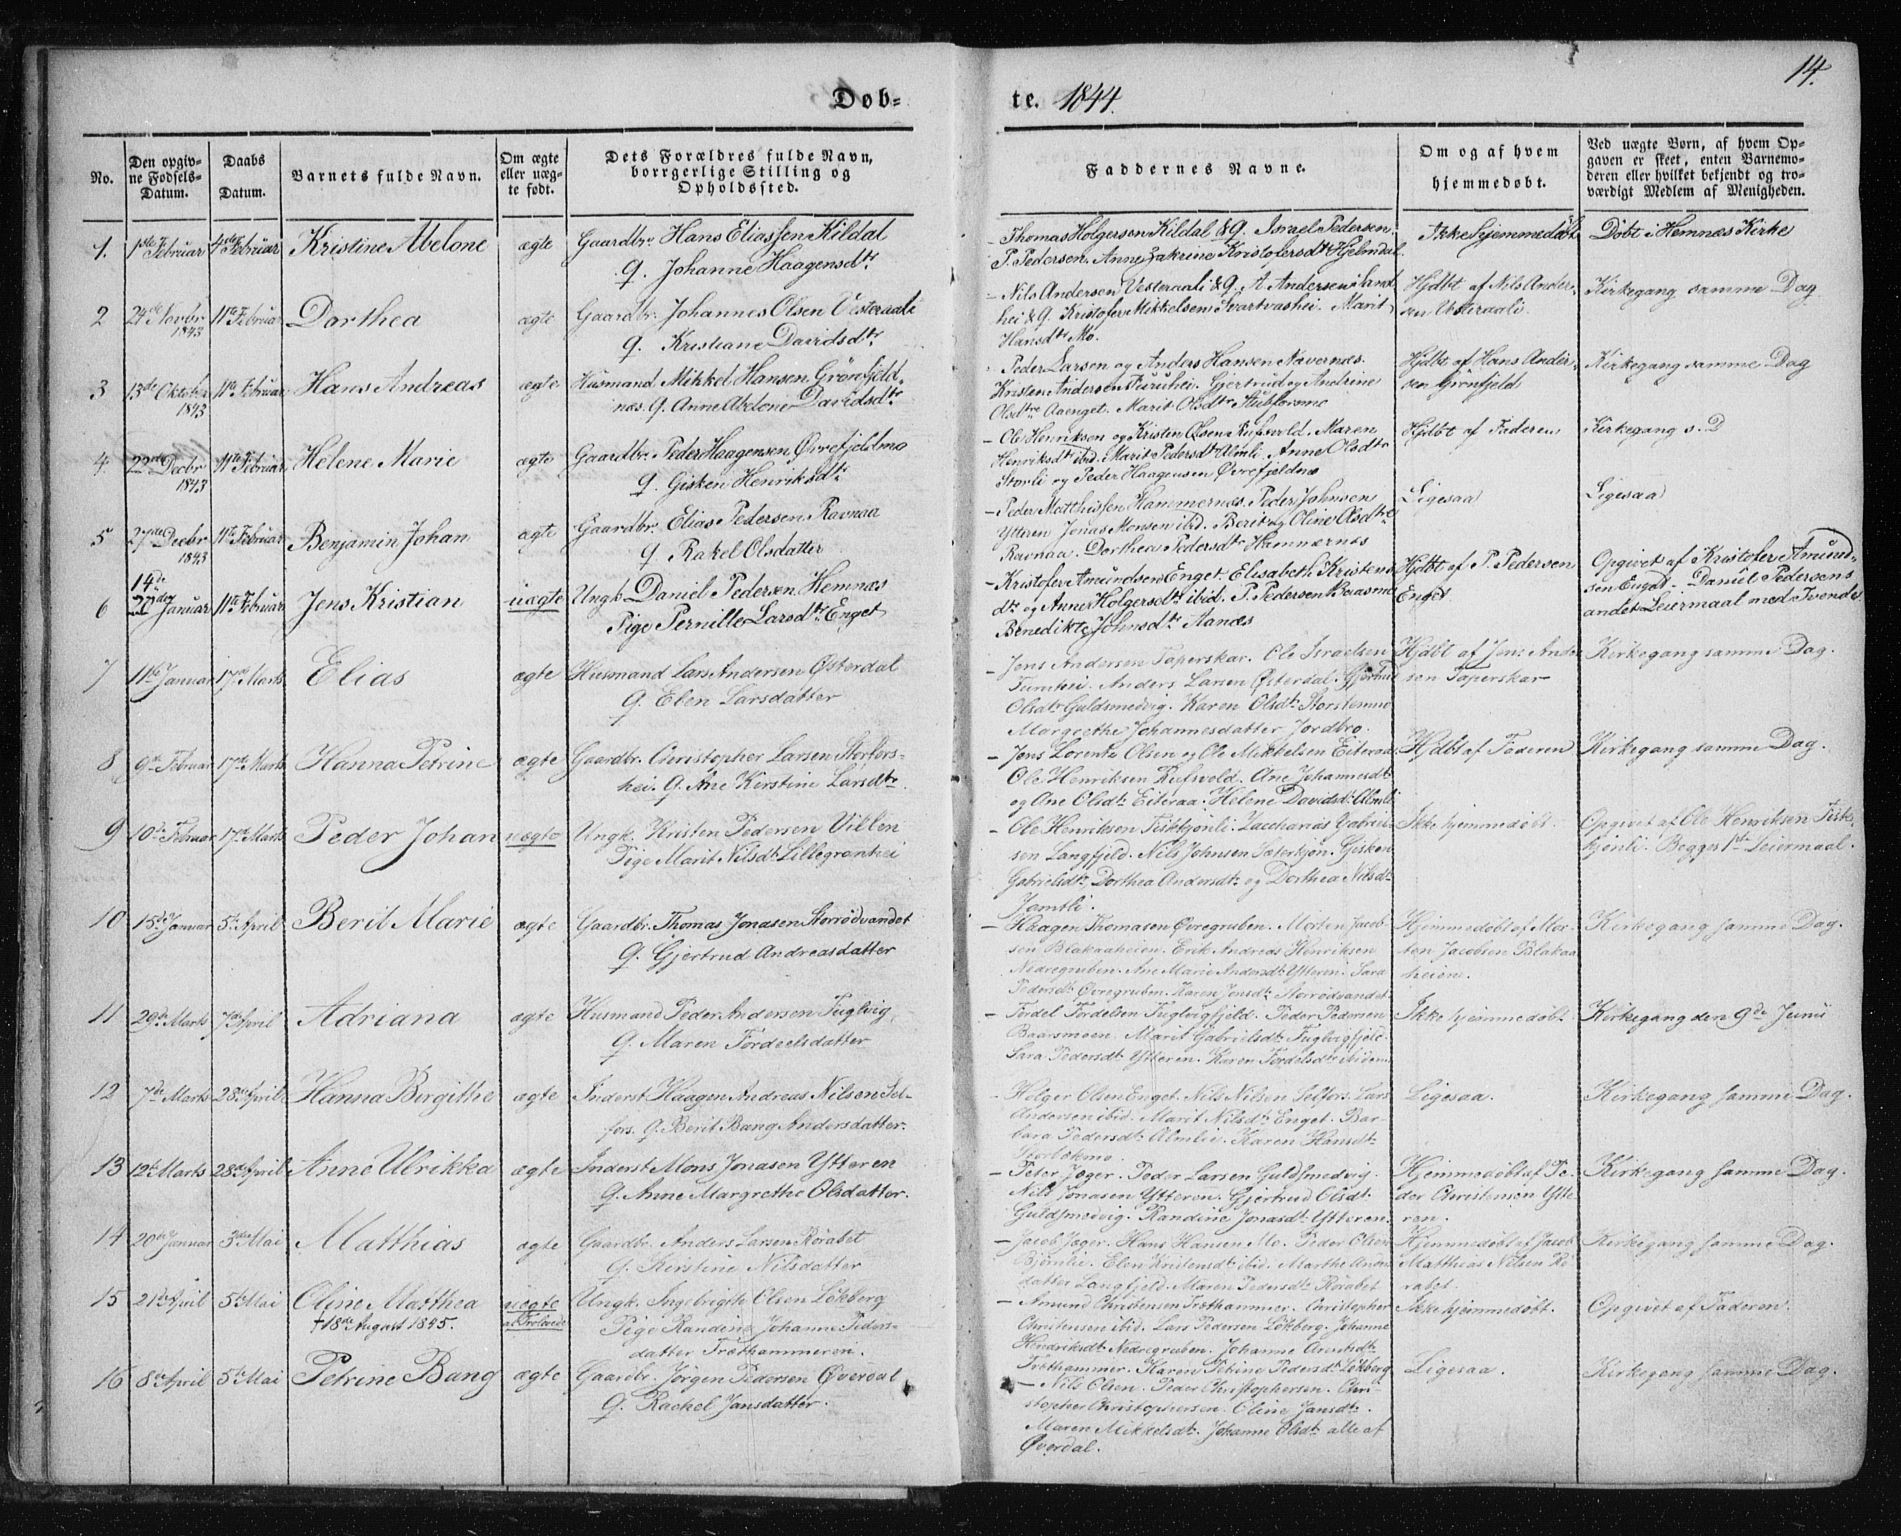 14.
Døb-
te. 1844.
No.
Den opgiv-
ne Fødsels-
Datum.
Daabs
Datum.
Barnets fulde Navn.
Om ægte
eller uæg-
te født.
Dets Forældres fulde Navn,
borrgerlige Stilling og
Opholdssted.
Faddernes Navne.
Om og af hvem
hjemmedøbt.
Ved uægte Børn, af hvem Op-
gaven er skeet, enten Barnemo-
deren eller hvilket bekjendt og tro-
værdigt Medlem af Menigheden.
1. 1ste Februar 4de Februar Kristine Abelone ægte Gaardbr. Hans Eliassen Kildal
q. Johanne Haagensdtr
Thomas Holgersen Kildal & q. Israel Pedersen.
P. Pedersen. Anne Zakrine Kristofersdtr Hjelmdal.
Ikke hjemmedøbt
Døbt i Hemnæs Kirke
2 24de Novbr 1843 11te Februar Dorthea ægte Gaardbr. Johannes Olsen Vesteraali
q. Kristiane Davidsdtr
Nils Andersen Vesteraali & q. A. Andersen
hei & q. Kristofer Mikkelsen Svartvashei. Marit
Hansdtr Mo.
Hjdbt af Nils Ander-
sen Vesteraali.
Kirkegang samme Dag
3 13de Oktober 1843 11te Februar Hans Andreas ægte Husmand Mikkel Hansen Grønfjeld-
næs. q. Anne Abelone Davidsdtr
Peder Larsen og Anders Hansen Navernæs.
Kristen Andersen Furuhei. Gjertrud og Andrine
Olsdtre Aaenget. Marit Olsdtr Stubforsmo
Hjdbt af Hans Ander-
sen Grønfjeld
Kirkegang samme Dag
4 22de Decbr 1843 11te Februar Helene Marie ægte Gaardbr. Peder Haagensen Øvrefjeldmo
q. Gisken Henriksdtr
Ole Henriksen og Kristen Olsen Rufsvold. Maren
Henriksdtr ibid. Marit Pedersdtr Almli. Anne Olsdtr
Storli og Peder Haagensen Øvrefjeldmo
Hjdbt af Faderen
Kirkegang s. D
5 27de Decbr 1843 11te Februar Benjamin Johan ægte Gaardbr. Elias Pedersen Ravnaa
q. Rakel Olsdatter
Peder Matthisen Hammernæs. Peder Johnsen
Ytteren Jonas Monsen ibid. Berit og Oline Olsdtre
Ravnaa. Dorthea Pedersdtr Hammernæs
Ligesaa
Ligesaa
6 14de Januar 11te Februar Jens Kristian uægte Ungk. Daniel Pedersen Hemnæs
Pige Pernille Larsdtr Enget
Kristofer Amundsen Enget. Elisabeth Kristens-
dtr og Anne Holgersdtr ibid. P. Pedersen
Benedikte Johnsdtr Aanæs
Hjdbt af P. Pedersen
Enget
Opgivet af Kristofer Amund-
sen Enget. Daniel Pedersens
andet Leiermaal med
7 11te Januar 17de Marts Elias ægte Husmand Lars Andersen Østerdal
q. Eben Larsdatter
Jens Andersen Taperskar. Ole Israelsen
Furuhei. Anders Larsen Østerdal. Gjertrud
Olsdtr Guldsmedvig. Karen Olsdtr
Margrethe Johannesdatter Jordbro.
Hjdbt af Jens Ander-
sen Taperskar
Kirkegang samme Dag.
8 9de Februar 17de Marts Hanna Petrine ægte Gaardbr. Christopher Larsen Storfors-
hei. q. Ane Kirstine Larsdtr.
Jens Lorentz Olsen og Ole Mikkelsen Eiteraa.
Ole Henriksen Rufsvold. Ane Johannesdtr
og Ane Olsdtr Eiteraa. Helene Davidsdtr Almli
Hjdbt af Faderen
Kirkegang samme Dag.
9 10de Februar 17de Marts Peder Johan uægte Ungk. Kristen Pedersen Villen
Pige Marit Nilsdtr Lillegrønhei
Ole Henriksen Fisktjønli. Zaccharias Gabriel-
sen Langfjeld. Nils Johnsen Sæterkjøn. Gisken
Gabrielsdtr Dorthea Andersdtr og Dorthea Nilsdtr
Jamtli.
Ikke hjemmedøbt.
Opgivet af Ole Henriksen Fisk-
kjønli. Begges 1ste Leiermaal.
10 15de Januar 5te April Berit Marie ægte Gaardbr. Thomas Jonasen Storrødvandet
q. Gjertrud Andreasdatter
Haagen Thomasen Øvregruben. Morten Jacob-
sen Blakaaheien. Erik Andreas Henriksen
Nedregruben. Ane Marie Andersdtr Ytteren. Sara
Pedersdtr Øvregruben. Karen Jensdtr Storrødvandet.
Hjemmedøbt af Mor-
ten Jacobsen Blakaa
heien.
Kirkegang samme Dag.
11 29de Marts 7de April Adriana ægte Husmand Peder Andersen Fuglvig.
q. Maren Fordeelsdatter
Fordel Fordelsen Fuglvigfjeld. Peder Pedersen
Baarsmoen. Marit Gabrielsdtr Fuglvigfjeld.
Sara Pedersdtr Ytteren. Karen Fordelsdtr ibidem
Ikke hjemmedøbt.
Kirkegang den 9de Junii
12 7de Marts 28de April Hanna Birgithe ægte Inderst Haagen Andreas Nilsen Sel-
fors. q. Berit Bang Andersdatter.
Holger Olsen Enget. Nils Nilsen Selfors. Lars
Andersen ibid. Marit Nilsdtr Enget. Bar-
bara Pedersdtr Almlii. Karen Hansdtr
Ligesaa.
Kirkegang samme Dag.
13 12te Marts 28de April Anne Ulrikka ægte Inderst Mons Jonasen Ytteren
q. Anne Margrethe Olsdatter.
Peter Jæger. Peder Larsen Guldsmedvig.
Nils Jonasen Ytteren. Gjertrud Olsdtr
Guldsmedvig. Randine Jonasdtr Ytteren.
Hjemmedøbt af Pe-
der Christensen Ytte-
ren.
Kirkegang samme Dag.
14 20de Januar 3de Mai Matthias ægte Gaardbr. Anders Larsen Rørabet
q. Kirstine Nilsdatter
Jacob Jæger. Hans Hansen Mo. Peder Olsen
Bjørnlie. Elen ibid. Marthe
datter Langfjeld. Maren Pedersdtr Rørabet
Hjemmedøbt af Jacob
Matthias Nilsen Rø-
rabet.
Kirkegang samme Dag.
15 21de April 5te Mai Oline Marthea
+ 18de August 1845.
uægte
af Trolovede
Ungk. Ingebrigth Olsen Løkberg
Pige Randine Johanne Peders-
datter Træthammeren.
Amund Christensen Træthammer. Christopher
Christensen ibid. Lars Pedersen Løkberg. Johanne
Hendriksdtr Nedregruben. Johanne Arentsdtr
Træthammer. Karen Petrine Pedersdtr Løkberg
Ikke hjemmedøbt.
Opgivet af Faderen.
16 8de April 5te Mai Petrine Bang ægte Gaardbr. Jørgen Pedersen Øverdal
q. Rachel Jansdatter.
Nils Olsen. Peder Christophersen. Chri-
stopher Christophersen. Oline Jansdtr.
Maren Mikkelsdtr. Johanne Olsdtr alle af
Øverdal.
Ligesaa.
Kirkegang samme Dag.